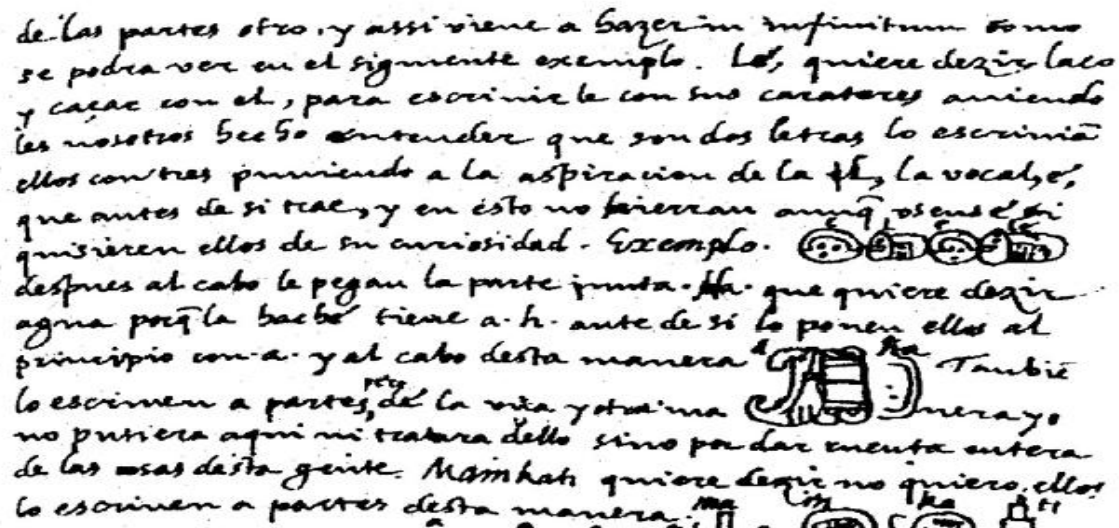 de las partes otro, y assi viene a hazer in infinitum como
se podra ver en el siguiente exemplo. Lé, quiere dezir laço
y caçar con el, para escrivirle con sus carateres aviendo
les nosotros hecho entender que son dos letras lo escrivian̄
ellos con tres puniendo a la aspiracion de la l, la vocal, é,
que antes de si trae, y en esto no hierran aunq̄ osense si
quisieren ellos de su curiosidad. Exemplo. e l e lé
despues al cabo le pegan la parte junta. Ha. que quiere dezir
agua porq̄ la hache tiene a. h. ante de si lo ponen ellos al
principio con a. y al cabo desta manera a ha Tambiē
lo escriven a partes, pero de la una y otra ma nera yo
no pusiera aqui ni tratara dello sino por dar cuenta entera
de las cosas desta gente. Mainkati quiere dezir no quiero, ellos
lo escriven a partes desta manera. ma in ka ti